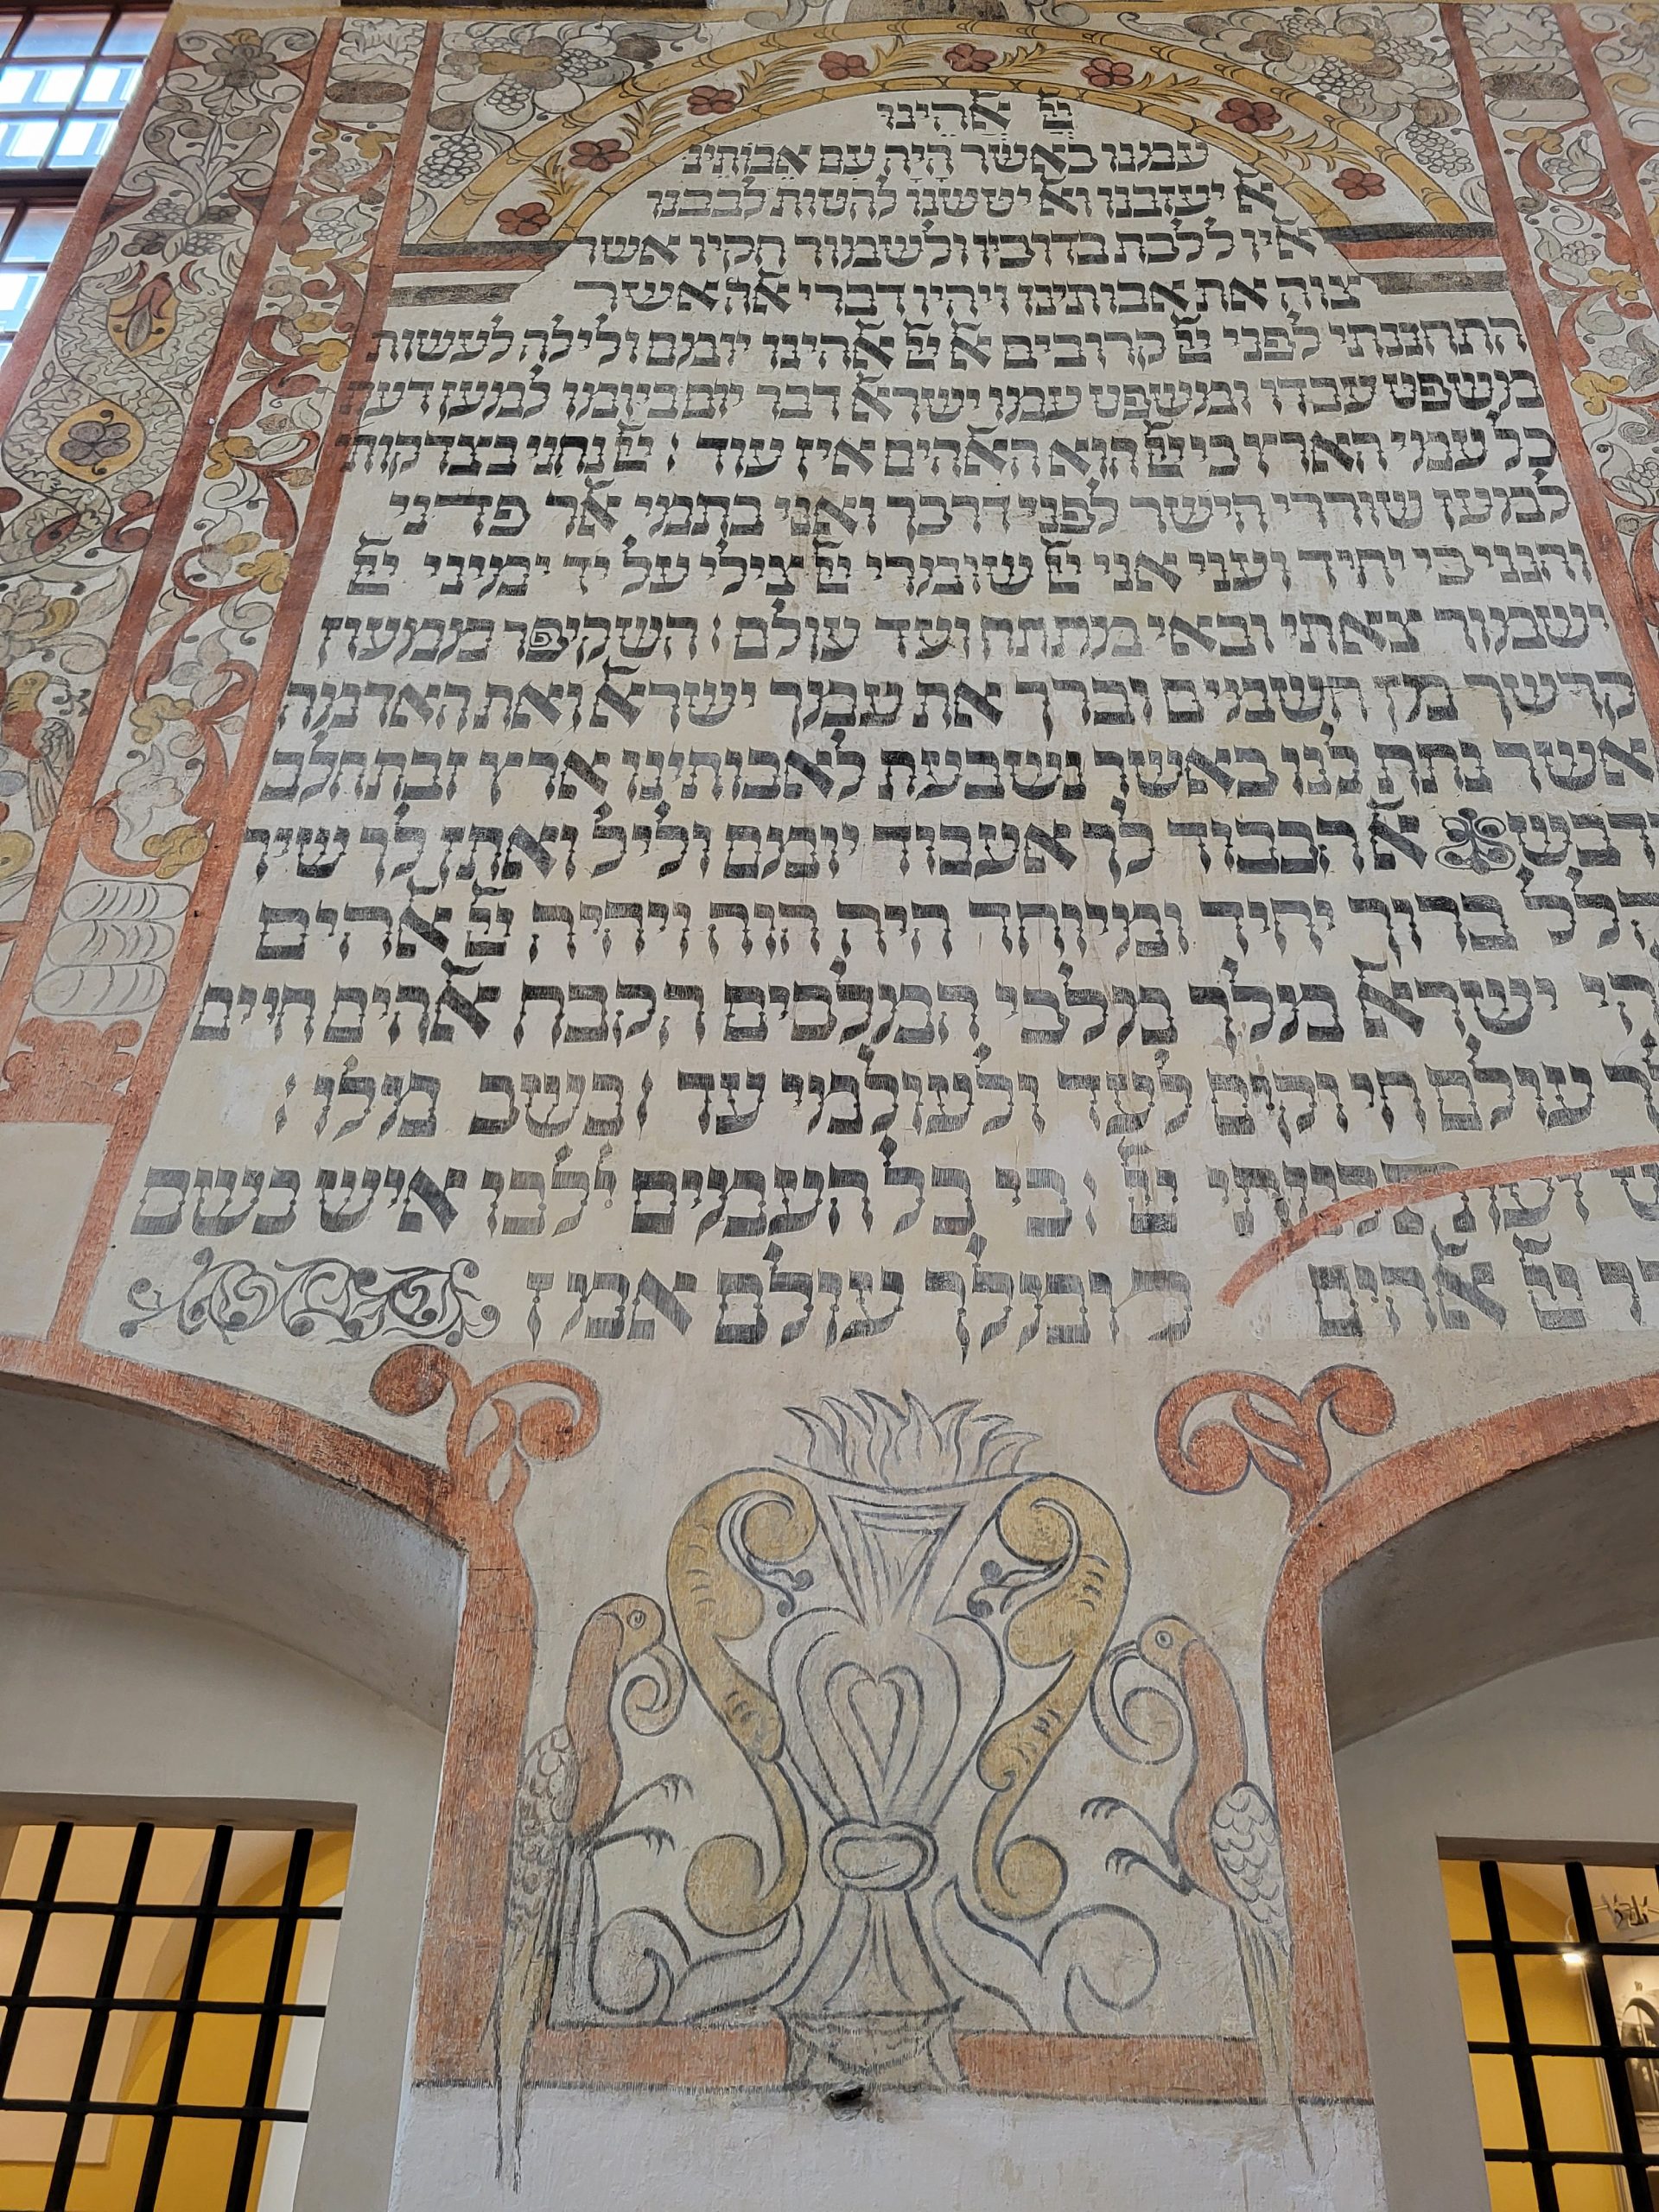 יי אלהינו
עמנו כאשר היה עם אבותינו
אל יעזבנו ואל יטשנו להטות לבבנו
אליו ללכת בדרכיו ולשמור חקיו אשר
צוה את אבותינו ויהיו דברי אלה אשר
התחננתי לפני יי קרובים אל יי אלהינו יומם ולילה לעשות
משפט עבדו ומשפט עמו ישראל דבר יום ביומו למען דעת
כל עמי הארץ כי יי הוא האלהים אין עוד : יי נחני בצדקותי
למען שוררי הישר לפני דרכך ואני בתמי אלך פדיני
וחנני כי יחיד ועני אני יי שומרי יי צילי על יד ימיני יי
ישמור צאתי ובאי מתתח ועד עולם : השקיפה ממעון
קדשך מן השמים וברך את עמך ישראל ואת האדמה
אשר נתת לנו כאשר נשבעת לאבותינו ארץ זבת חלב
ודבש אל הכבוד לך אעבוד יומם וליל ואתן לך שיר
הלל ברוך יחיד ומיוחד היה הוה ויהיה יי אלהים
אלהי ישראל מלך מלכי המלכים הקבה אלהים חיים
מלך עולם חי וקים לעד ולעולמי עד : בשכ מלו :
יי : כי כל העמים ילכו איש בשם
יי אלהים ומלך עולם אמן